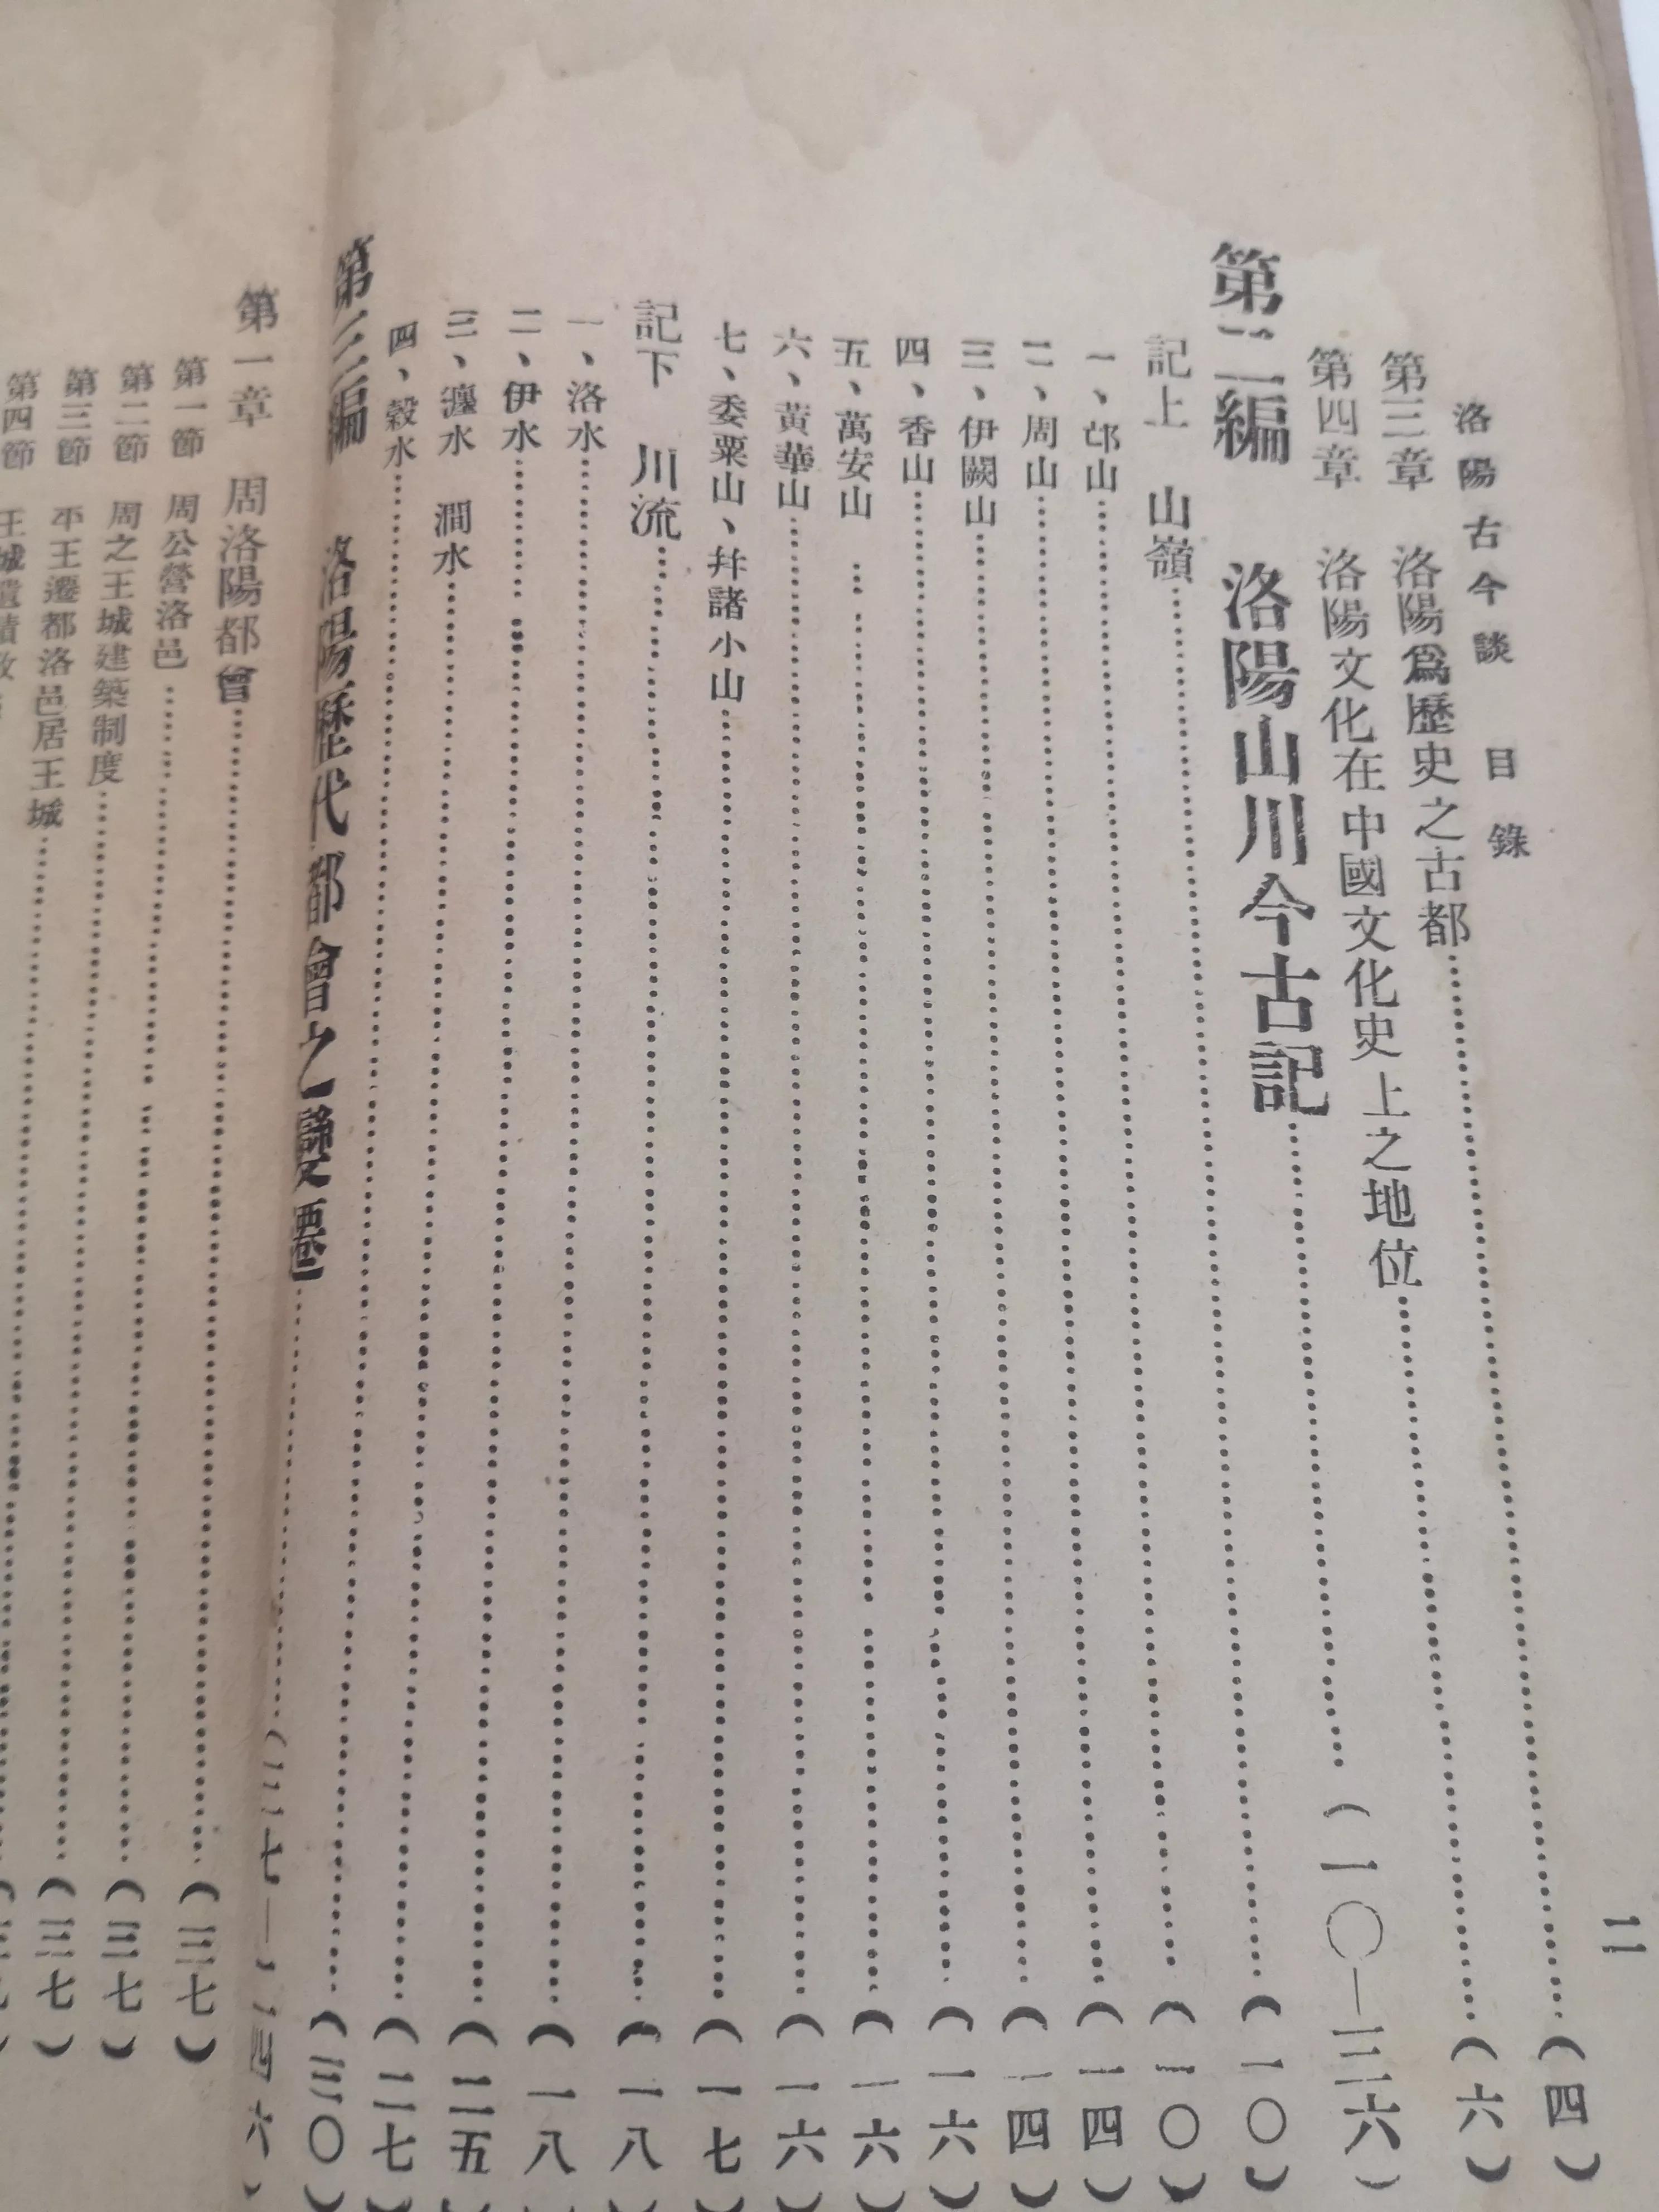 二
洛陽古今談 目錄
第三章 洛陽爲歷史之古都……(四)
第四章 洛陽文化在中國文化史上之地位……(六)
第二編 洛陽山川今古記……(一〇—三六)
記上 山嶺……(一〇)
一、邙山……(一〇)
二、周山……(一四)
三、伊闕山……(一四)
四、香山……(一六)
五、萬安山……(一六)
六、黃華山……(一六)
七、委粟山、幷諸小山……(一七)
記下 川流……(一八)
一、洛水……(一八)
二、伊水……(二五)
三、瀍水 澗水……(二七)
四、穀水……(三〇)
第三編 洛陽歷代都會之變遷……(三七—一四六)
第一章 周洛陽都會……(三七)
第一節 周公營洛邑……(三七)
第二節 周之王城建築制度……(三七)
第三節 平王遷都洛邑居王城……
第四節 王城遺蹟